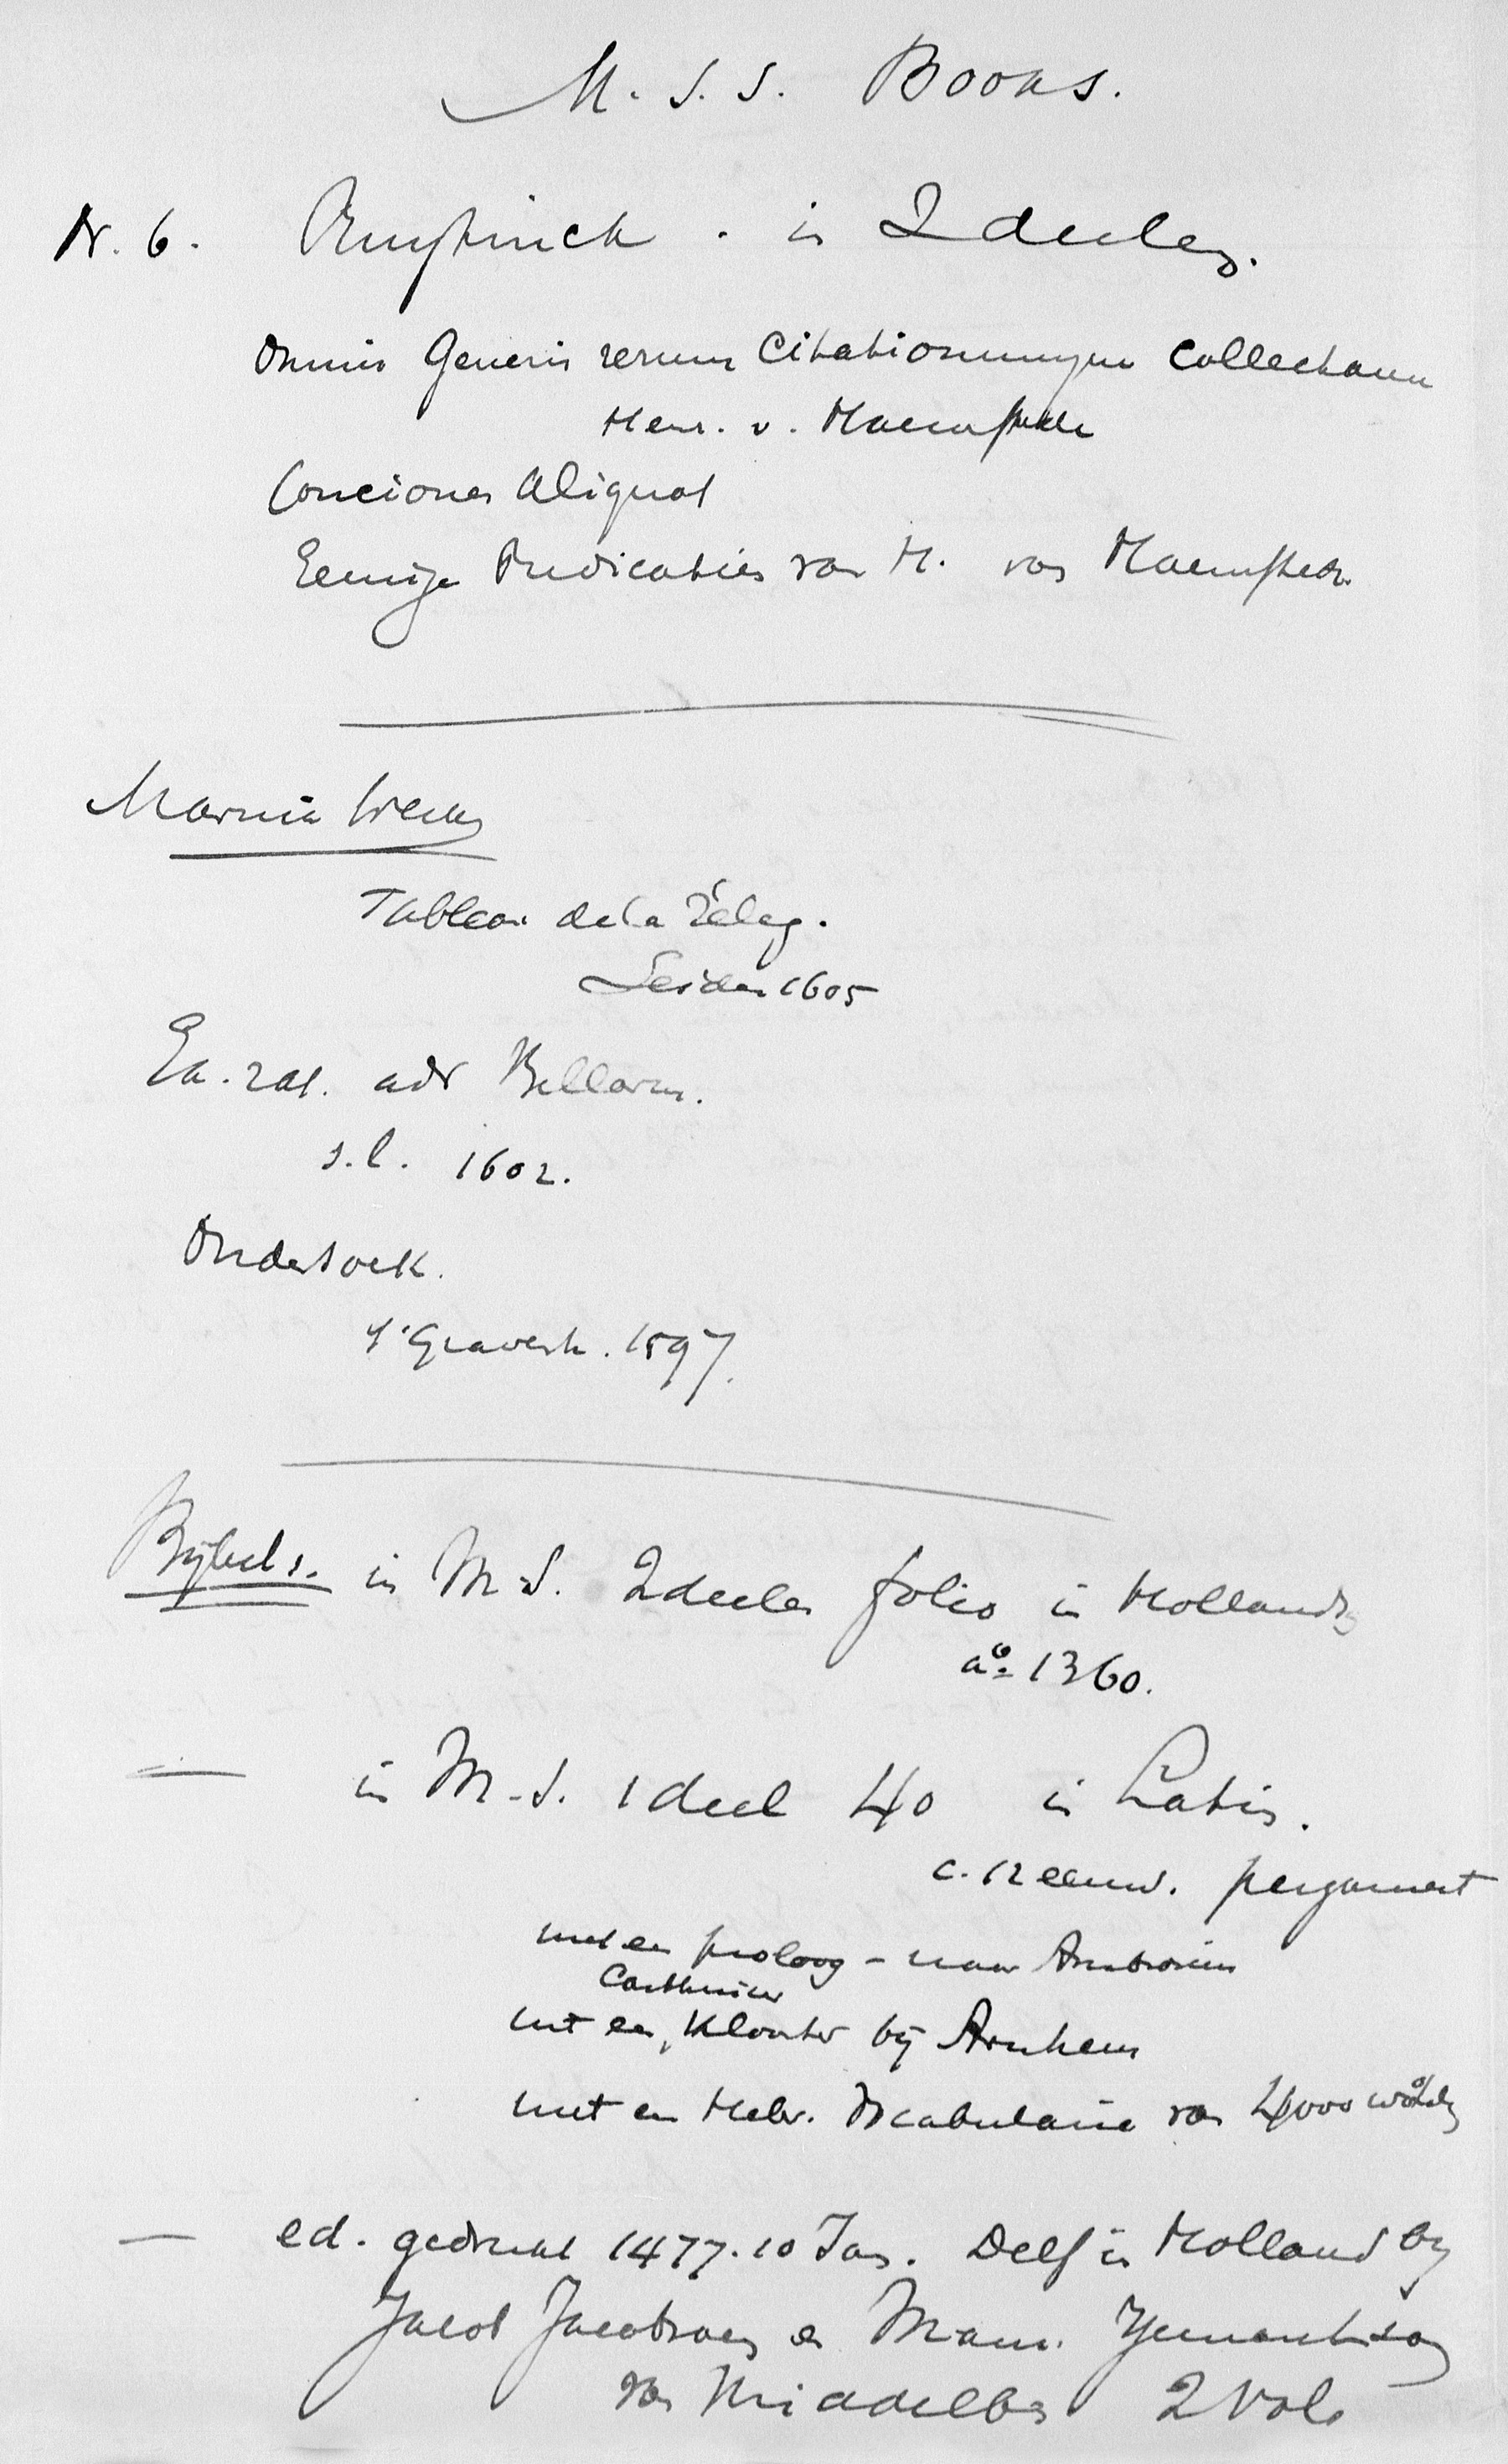 M.S.S. Books.
N. 6. Ruytinck. in 2 deelen.
Omnis Generis rerum Citationumque Collectann
Henr. v. Haemstede
Conciones Aliquot
Eenige Predicaties van H. van Haemstede
Marnix Werken
Tableau de la Relig.
Leiden 1605
adv Bellarm.
s.l. 1602.
Ondersoek.
s'Gravenh. 1597.
Bijbels. in M.S. 2 deelen folio in Hollands
a⁰ 1360.
— in M.S. 1 deel 4o in Latin.
c. 12 eeuw. pergament
met een proloog – naar Ambrosius
Carthuizer
uit een, Klooster bij Arnhem
met een Hebr. Vocabulaire van 4000 woorden
— ed. gedrukt 1477. 10 Jan. Delf in Holland by
Jacob Jacobsoen en Maur. Yemantszoen
van Middelbo 2 Vols